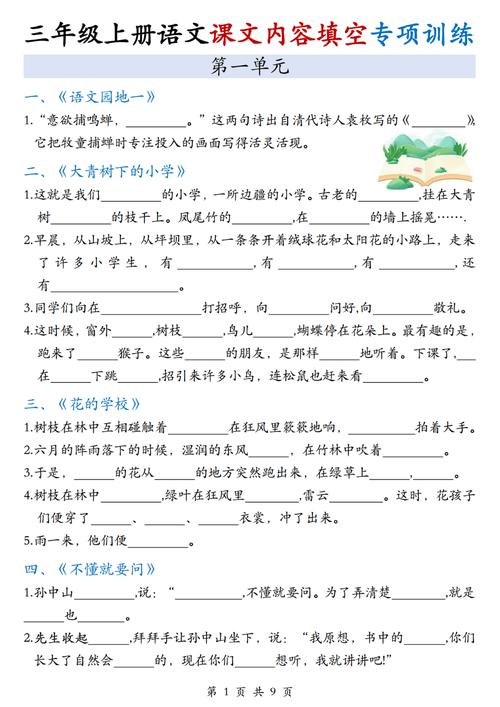 三年级上册语文课文内容填空专项训练
第一单元
一、《语文园地一》
1.“意欲捕鸣蝉，__________。”这两句诗出自清代诗人袁枚写的《__________》，
它把牧童捕蝉时专注投入的画面写得活灵活现。
二、《大青树下的小学》
1.这就是我们__________的小学，一所边疆的小学。古老的__________,挂在大青
树__________的枝干上。凤尾竹的__________,在__________的墙上摇晃……
2.早晨，从山坡上，从坪坝里，从一条条开着绒球花和太阳花的小路上，走来
了许多小学生，有__________,有__________,有__________,还
有__________。
3.同学们向在__________打招呼，向__________问好,向__________敬礼。
4.这时候，窗外______,树枝______,鸟儿______,蝴蝶停在花朵上。最有趣的是，
跑来了______猴子。这些______的朋友，是那样______地听着。下课了,___
在______下跳______,招引来许多小鸟，连松鼠也赶来看________。
三、《花的学校》
1.树枝在林中互相碰触着________在狂风里簌簌地响，________拍着大手。
2.六月的阵雨落下的时候，湿润的东风______,在竹林中吹着________。
3.于是，______的花从______的地方突然跑出来，在绿草上______,______。
4.树枝在林中________,绿叶在狂风里______,雷云______。这时，花孩子
们便穿了______、______、______衣裳，冲了出来。
5.雨一来，他们便__________。
四、《不懂就要问》
1.孙中山________,说：“__________,不懂就要问。为了弄清楚________,就是
______也______。”
2.先生收起______,拜拜手让孙中山坐下，说：“我原想，书中的______,你们
长大了自然会______的，现在你们______想听，我就讲讲吧!”
第 1 页 共 9 页